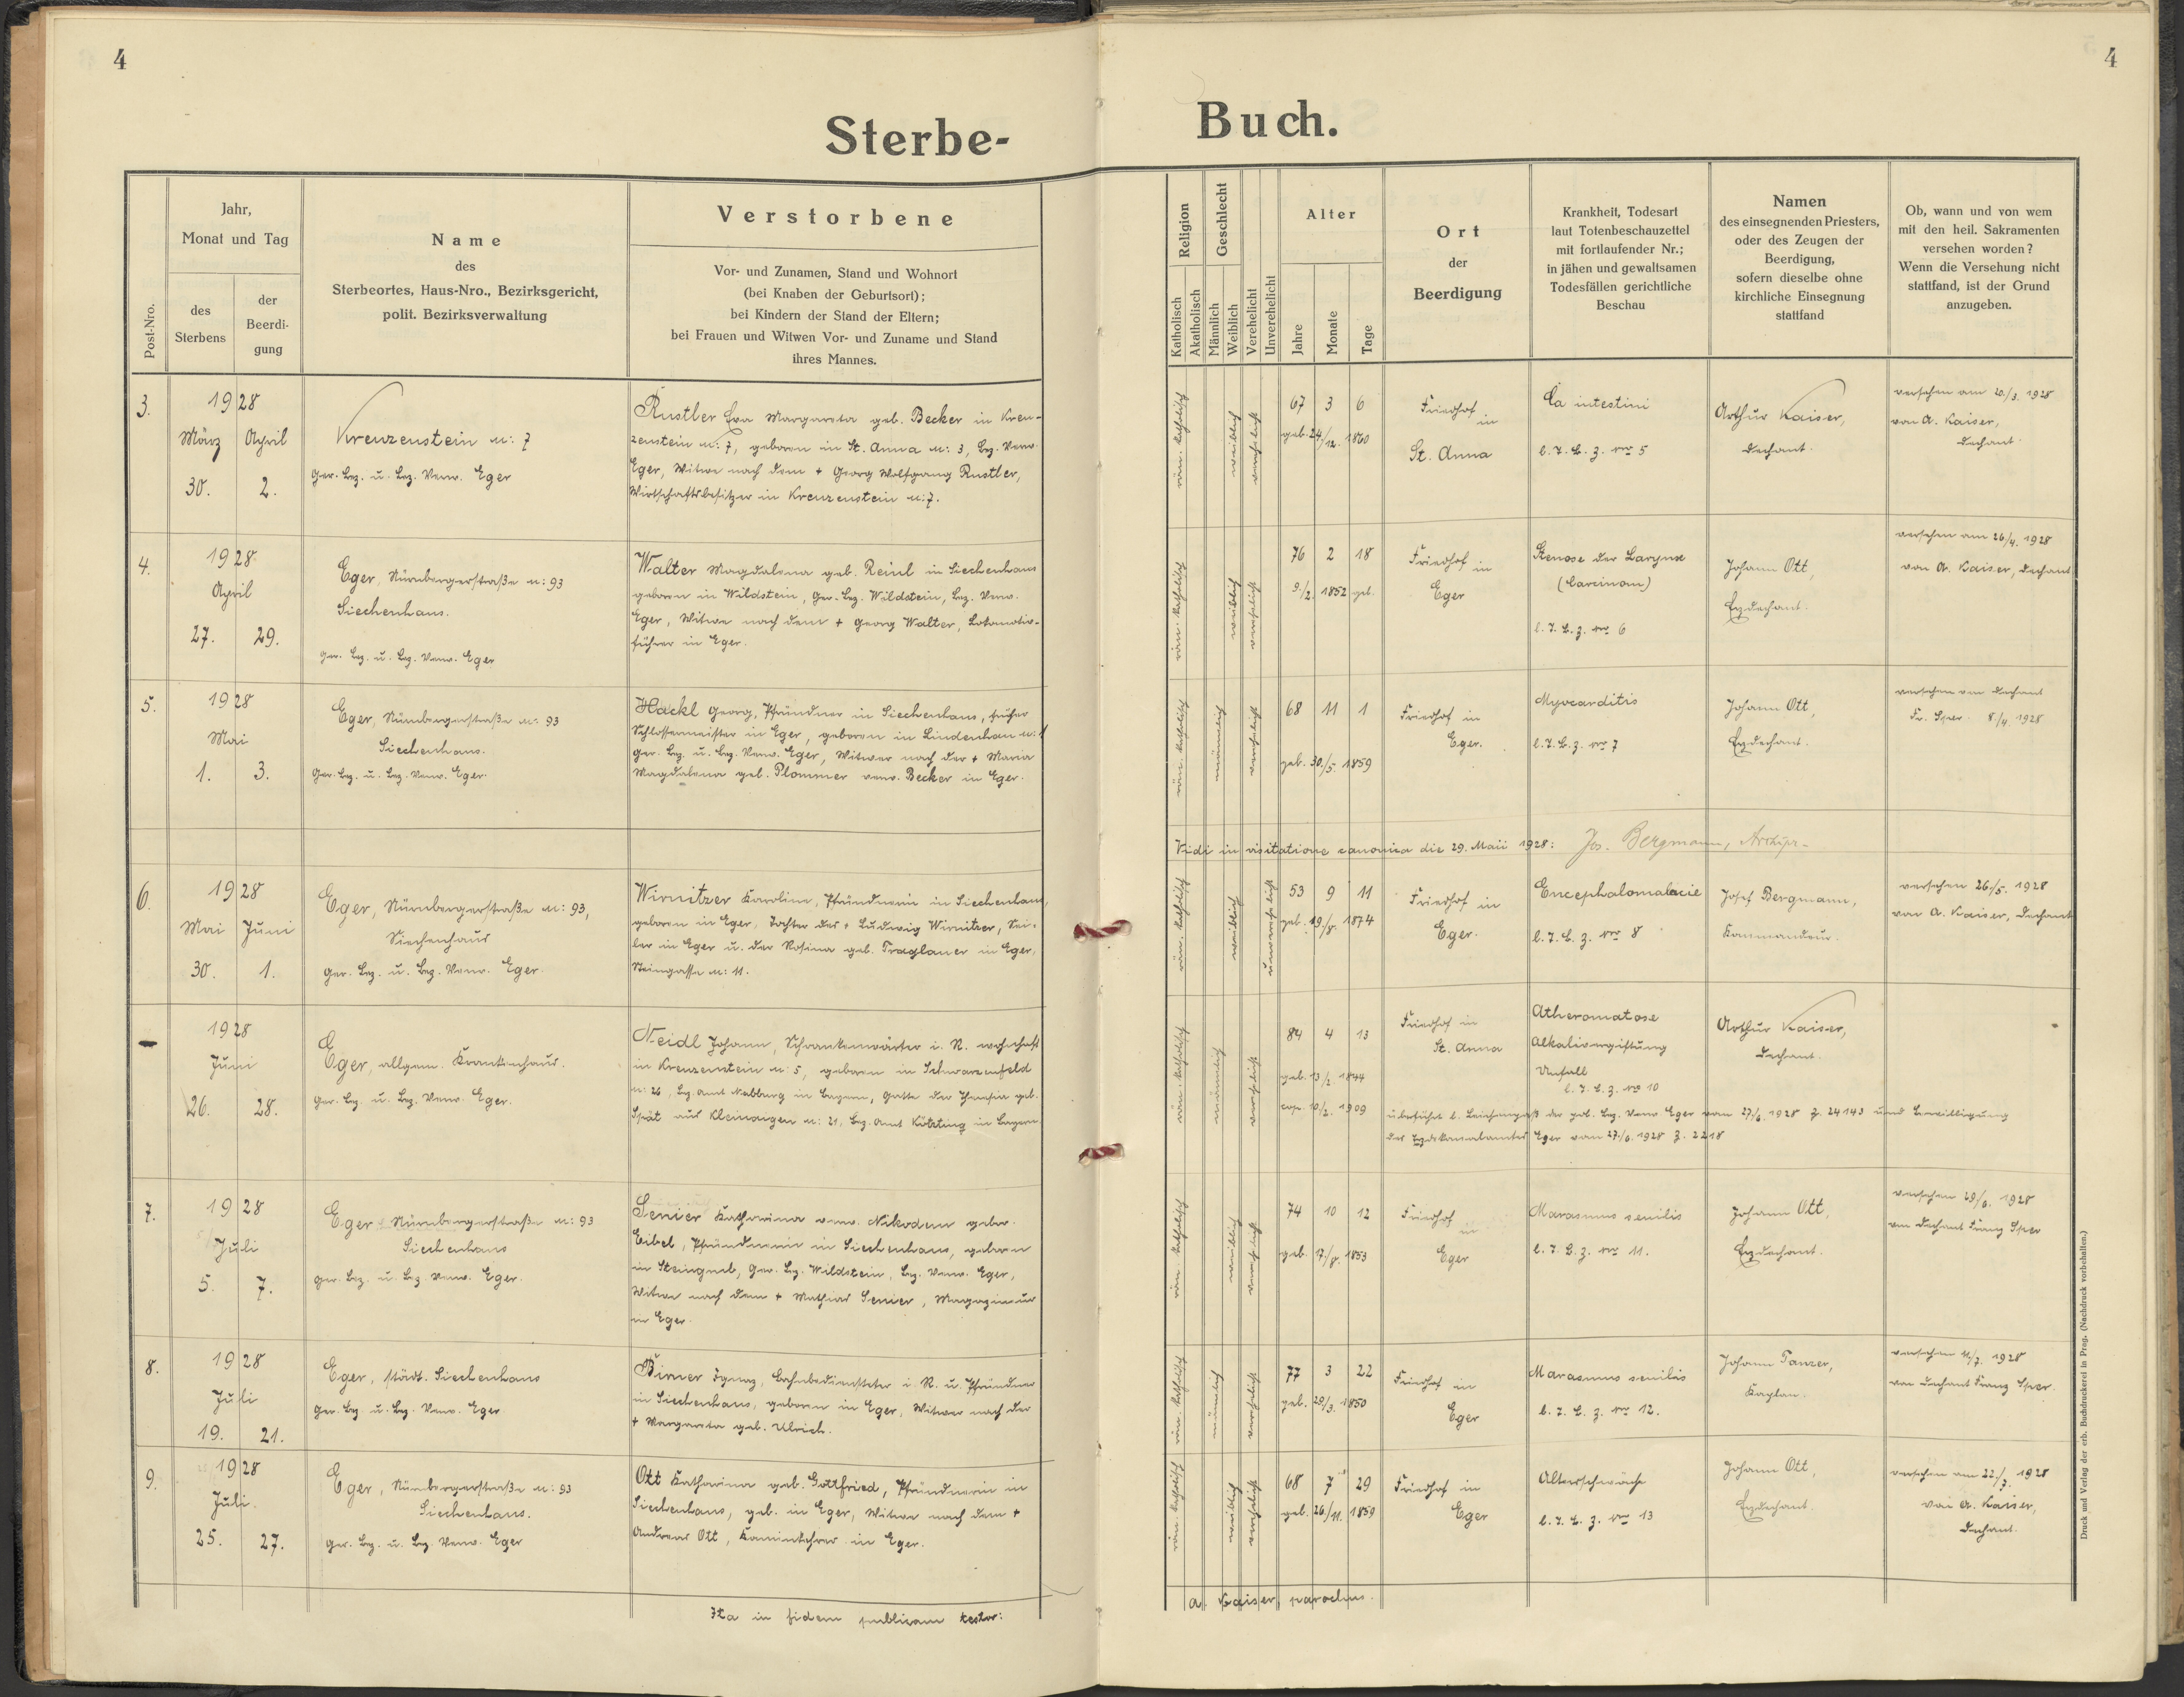 4
4
Sterbe-
Buch.
Post-Nro.
Jahr,
Monat und Tag
des
Sterbens
der
Beerdi-
gung
Name
des
Sterbeortes, Haus-Nro., Bezirksgericht,
polit. Bezirksverwaltung
Verstorbene
Vor- und Zunamen, Stand und Wohnort
(bei Knaben der Geburtsort);
bei Kindern der Stand der Eltern;
bei Frauen und Witwen Vor- und Zuname und Stand
ihres Mannes.
Religion
Katholisch
Akatholisch
Geschlecht
Männlich
Weiblich
Verehelicht
Unverehelicht
Alter
Jahre
Monate
Tage
Ort
der
Beerdigung
Krankheit, Todesart
laut Totenbeschauzettel
mit fortlaufender Nr.;
in jähen und gewaltsamen
Todesfällen gerichtliche
Beschau
Namen
des einsegnenden Priesters,
oder des Zeugen der
Beerdigung,
sofern dieselbe ohne
kirchliche Einsegnung
stattfand
Ob, wann und von wem
mit den heil. Sakramenten
versehen worden?
Wenn die Versehung nicht
stattfand, ist der Grund
anzugeben.
3.
1928
März April
30. 2.
Kreuzenstein n: 7
Ger. Bez. u. Bez. Verw. Eger
Rustler Eva Margareta geb. Becker in Kreu-
zenstein n: 7, geboren in St. Anna n: 3, Bez. Verw.
Eger, Witwe nach dem + Georg Wolfgang Rustler,
Wirtschaftsbesitzer in Kreuzenstein n: 7.
röm. katholisch
weiblich
verehelicht
67 3 6
geb. 24/12. 1860
Friedhof in
St. Anna
Ca intestini
l. T. B. z. Nro 5
Arthur Kaiser,
Dechant.
versehen am 20/3. 1928
von A. Kaiser,
Dechant.
4.
1928
April
27. 29.
Eger, Nürnbergerstraße n: 93
Siechenhaus.
Ger. Bez. u. Bez. Verw. Eger
Walter Magdalena geb. Reinl in Siechenhaus
geboren in Wildstein, Ger. Bez. Wildstein, Bez. Verw.
Eger, Witwe nach dem + Georg Walter, Lokomotiv-
führer in Eger.
röm. katholisch
weiblich
verehelicht
76 2 18
9/2. 1852 geb.
Friedhof in
Eger
Stenose der Larynx
(Carcinom)
l. T. B. z. Nro 6
Johann Ott,
Erzdechant.
versehen am 26/4. 1928
von A. Kaiser, Dechant
5.
1928
Mai
1. 3.
Eger, Nürnbergerstraße n: 93
Siechenhaus.
Ger. Bez. u. Bez. Verw. Eger.
Hackl Georg, Pfründner in Siechenhaus, früher
Schlossermeister in Eger, geboren in Lindenhau n: 1
Ger. Bez. u. Bez. Verw. Eger, Witwer nach der + Maria
Magdalena geb. Plommer verw. Becker in Eger.
röm. katholisch
männlich
verehelicht
68 11 1
geb. 30./5. 1859
Friedhof in
Eger.
Myocarditis
l. T. B. z. Nro 7
Johann Ott,
Erzdechant.
versehen von Dechant
Fr. Sper. 8/4. 1928
Vidi in visitatione canonica die 29. Maii 1928: Jos. Bergmann, Archipr.
6.
1928
Mai Juni
30. 1.
Eger, Nürnbergerstraße n: 93,
Siechenhaus
Ger. Bez. u. Bez. Verw. Eger.
Wirnitzer Karoline, Pfründnerin in Siechenhaus,
geboren in Eger, Tochter des + Ludwig Wirnitzer, Sei-
ler in Eger u. der Rosina geb. Traglauer in Eger,
Steingasse n: 11.
röm. katholisch
weiblich
unverehelicht
53 9 11
geb. 19/8. 1874
Friedhof in
Eger.
Encephalomalacie
l. T. B. z. Nro 8
Josef Bergmann,
Kommandeur.
versehen 26/5. 1928
von A. Kaiser, Dechant
-
1928
Juni
26. 28.
Eger, allgem. Krankenhaus.
Ger. Bez. u. Bez. Verw. Eger.
Neidl Johann, Schrankenwärter i. R. wohnhaft
in Kreuzenstein n: 5, geboren in Schwarzenfeld
n: 26, Bez. Amt Nabburg in Bayern, Gatte der Theresia geb.
Spät aus Kleinaigen n: 21, Bez. Amt Kötzting in Bayern.
röm. katholisch
männlich
verehelicht
84 4 13
geb. 13/2. 1844
cop. 10/2. 1909
Friedhof in
St. Anna
Atheromatose
Alkalivergiftung
Unfall
l. T. B. z. Nro 10
Arthur Kaiser,
Dechant.
überführt l. Leichenpaß der pol. Bez. Verw. Eger vom 27/6. 1928 Z. 24143 und Bewilligung
des Erzdekanalamtes Eger vom 27./6. 1928 Z. 2218
7.
1928
Juli
5. 7.
Eger Nürnbergerstraße n: 93
Siechenhaus
Ger. Bez. u. Bez. Verw. Eger.
Senier Katharina verw. Nikodem gebor.
Eibel, Pfründnerin in Siechenhaus, geboren
in Steingrub, Ger. Bez. Wildstein, Bez. Verw. Eger,
Witwe nach dem + Mathias Senier, Magazineur
in Eger.
röm. katholisch
weiblich
verehelicht
74 10 12
geb. 17/8. 1853
Friedhof
in
Eger
Marasmus senilis
l. T. B. z. Nro 11.
Johann Ott,
Erzdechant.
versehen 29/6. 1928
von Dechant Franz Sper
8.
1928
Juli
19. 21.
Eger, städt. Siechenhaus
Ger. Bez. u. Bez. Verw. Eger
Birner Ignaz, Bahnbediensteter i. R. u. Pfründner
in Siechenhaus, geboren in Eger, Witwer nach der
+ Margareta geb. Ulrich.
röm. katholisch
männlich
verehelicht
77 3 22
geb. 29/3. 1850
Friedhof in
Eger
Marasmus senilis
l. T. B. z. Nro 12.
Johann Tanzer,
Kaplan.
versehen 11/7. 1928
von Dechant Franz Sper.
9.
1928
Juli.
25. 27.
Eger, Nürnbergerstraße n: 93
Siechenhaus.
Ger. Bez. u. Bez. Verw. Eger
Ott Katharina geb. Gottfried, Pfründnerin in
Siechenhaus, geb. in Eger, Witwe nach dem +
Andreas Ott, Kaminkehrer in Eger.
röm. katholisch
weiblich
verehelicht
68 7 29
geb. 26/11. 1859
Friedhof in
Eger
Altersschwäche
l. T. B. z. Nro 13
Johann Ott,
Erzdechant.
versehen am 22./7. 1928
von A. Kaiser,
Dechant.
Ita in fidem publicam testor:
A. Kaiser, parochus.
Druck und Verlag der erb. Buchdruckerei in Prag. (Nachdruck vorbehalten.)